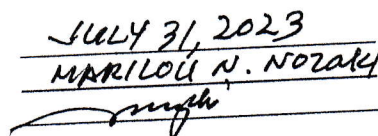 JULY 31, 2023
MARILOU N. NOZAKI